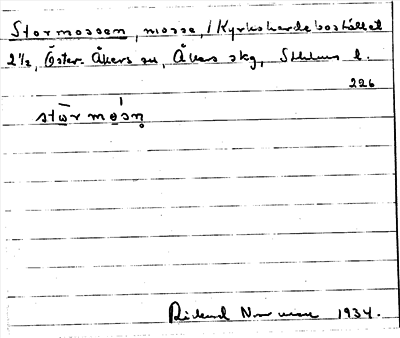 Stormossen, mosse, / Kyrkoherdebostället
2 1/2, Öster-Åkers sn, Åkers skg, Sthlms l.
226
stω̄rmòsn̥
Rickard 1934.